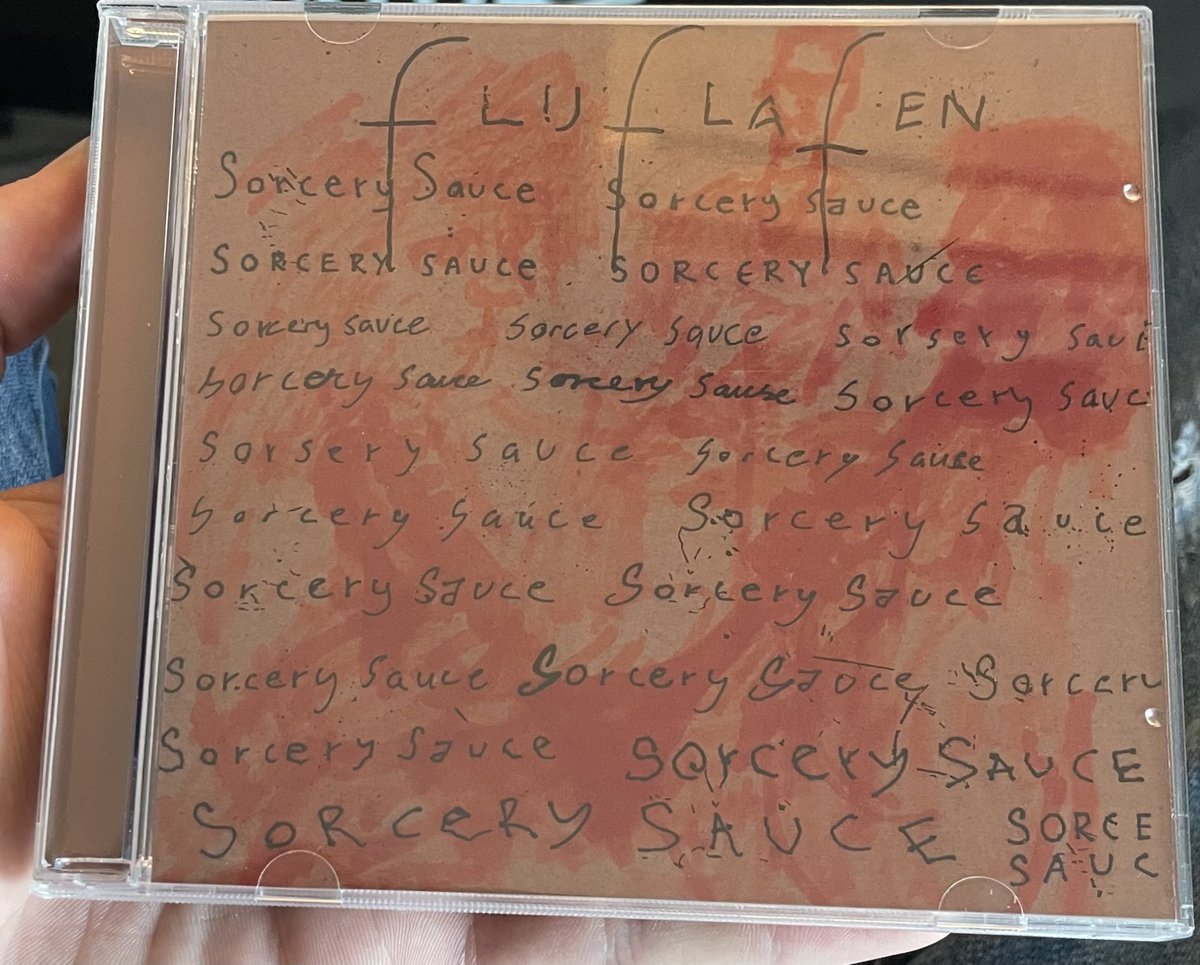 fLIJfLAfEN
Sorcery Sauce Sorcery sauce
SORCERY SAUCe SORCERY SAUCE
Sorcery sauce Sorcery sauce Sorsery Sau
Sorcery Sauce Sorcery Sause Sorcery Sauc
Sorsery sauce Sorcery Sause
Sorcery Sauce Sorcery Sauce
Sorcery Sauce Sorcery Sauce
Sorcery Sauce Sorcery Sauce Sorcery
Sorcery Sauce Sorcery SAUCE
SoRceRy SAUCE SORCE
SAUC